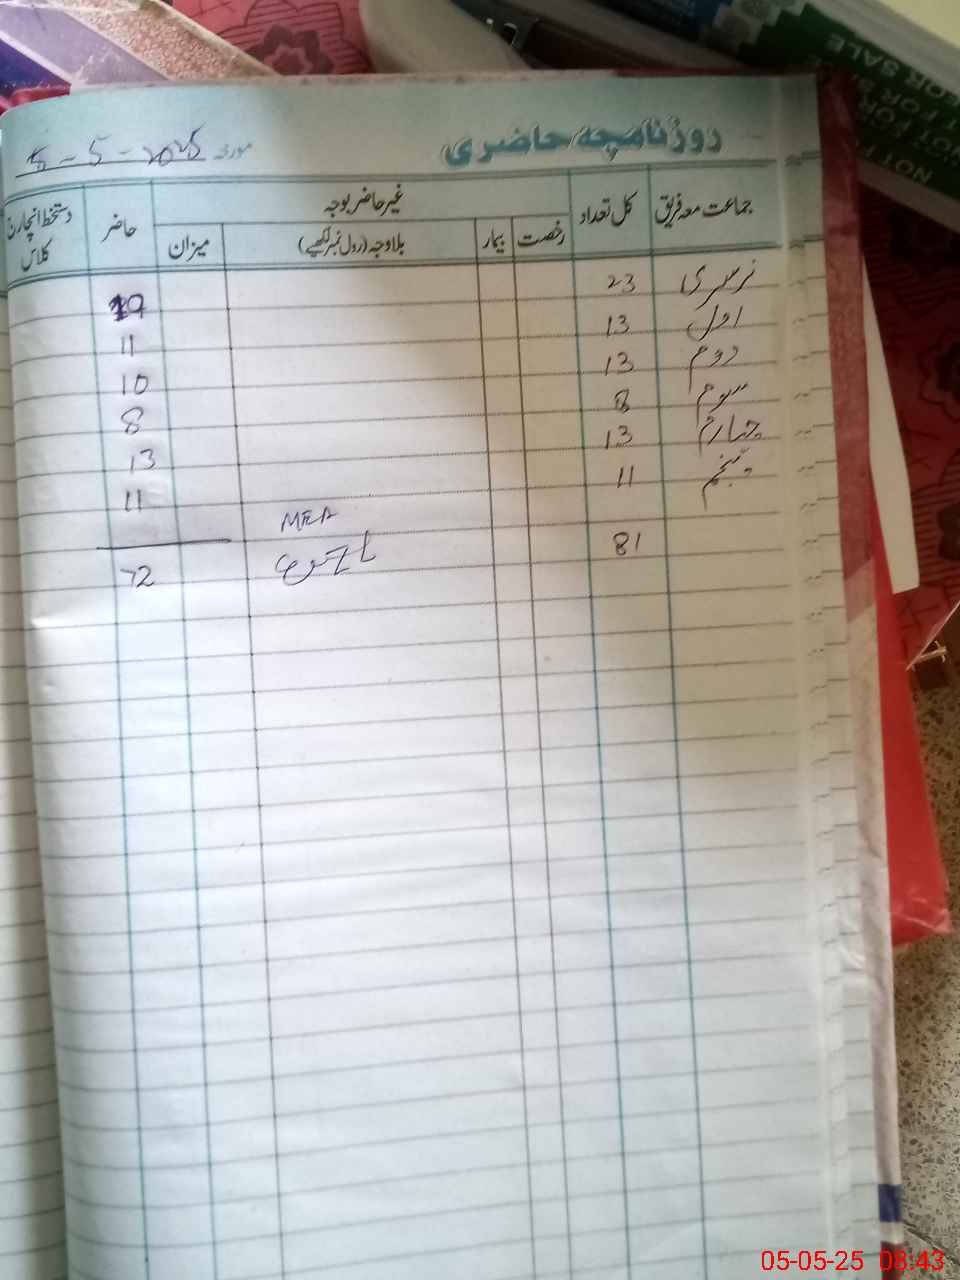 روزنامچہ حاضری
مورخہ 5-5-2025
جماعت معہ فریق کل تعداد غیر حاضر بوجہ حاضر دستخط انچارج کلاس
رخصت بیمار بلاوجہ (رول نمبر لکھیے) میزان
نرسری 23 19
اول 13 11
دوم 13 10
سوم 8 8
چہارم 13 13
پنجم 11 11
MEA
81 72
NOT FOR SALE
05-05-25 08:43